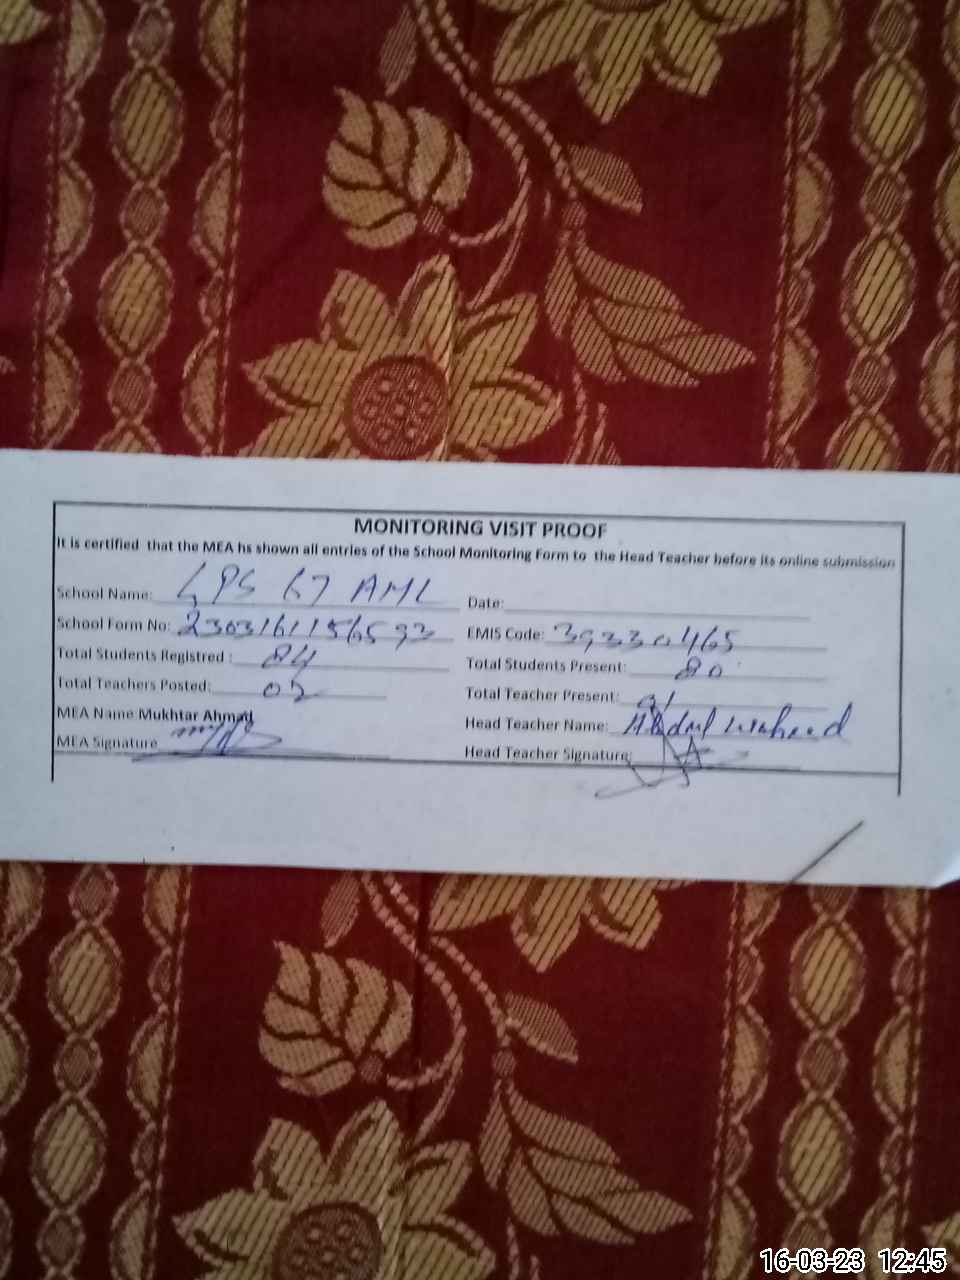 MONITORING VISIT PROOF
It is certified that the MEA hs shown all entries of the School Monitoring Form to the Head Teacher before its online submission
School Name: GPS 67 AML Date:
School Form No: 2303161156593 EMIS Code: 39330465
Total Students Registred : 84 Total Students Present: 80
Total Teachers Posted: 02 Total Teacher Present: 01
MEA Name Mukhtar Ahmad Head Teacher Name: Abdul Waheed
MEA Signature Head Teacher Signature:
16-03-23 12:45